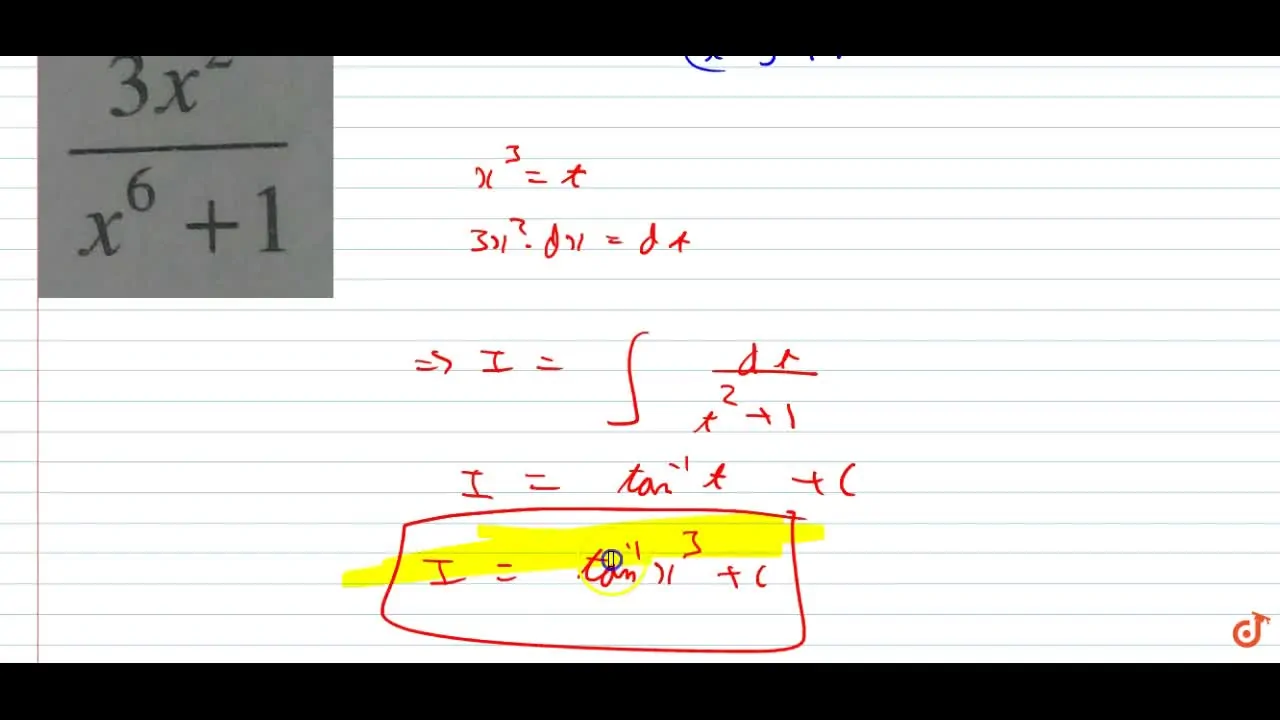 3x²
x⁶ + 1
x³ = t
3x². dx = dt
=> I = ∫ dt / t² + 1
I = tan⁻¹ t + C
I = tan⁻¹ x³ + C